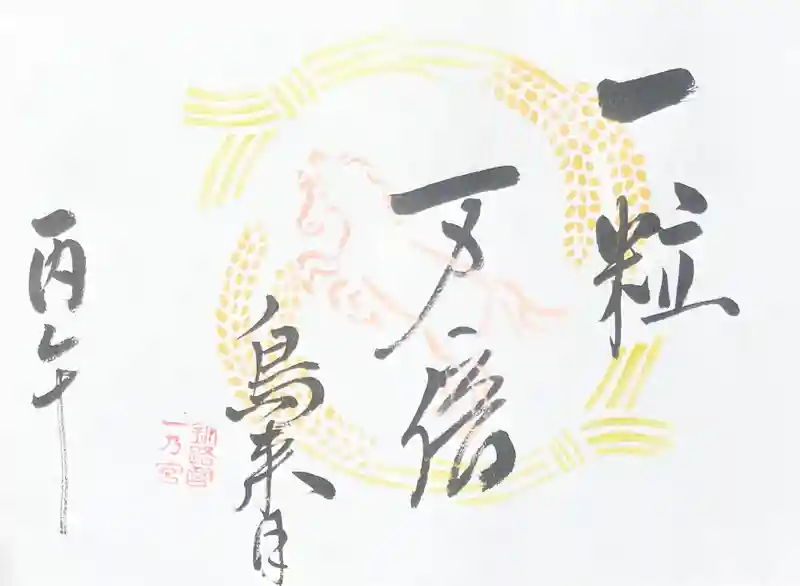 一粒
万倍
鳥来月
丙午
釧路國
一乃宮